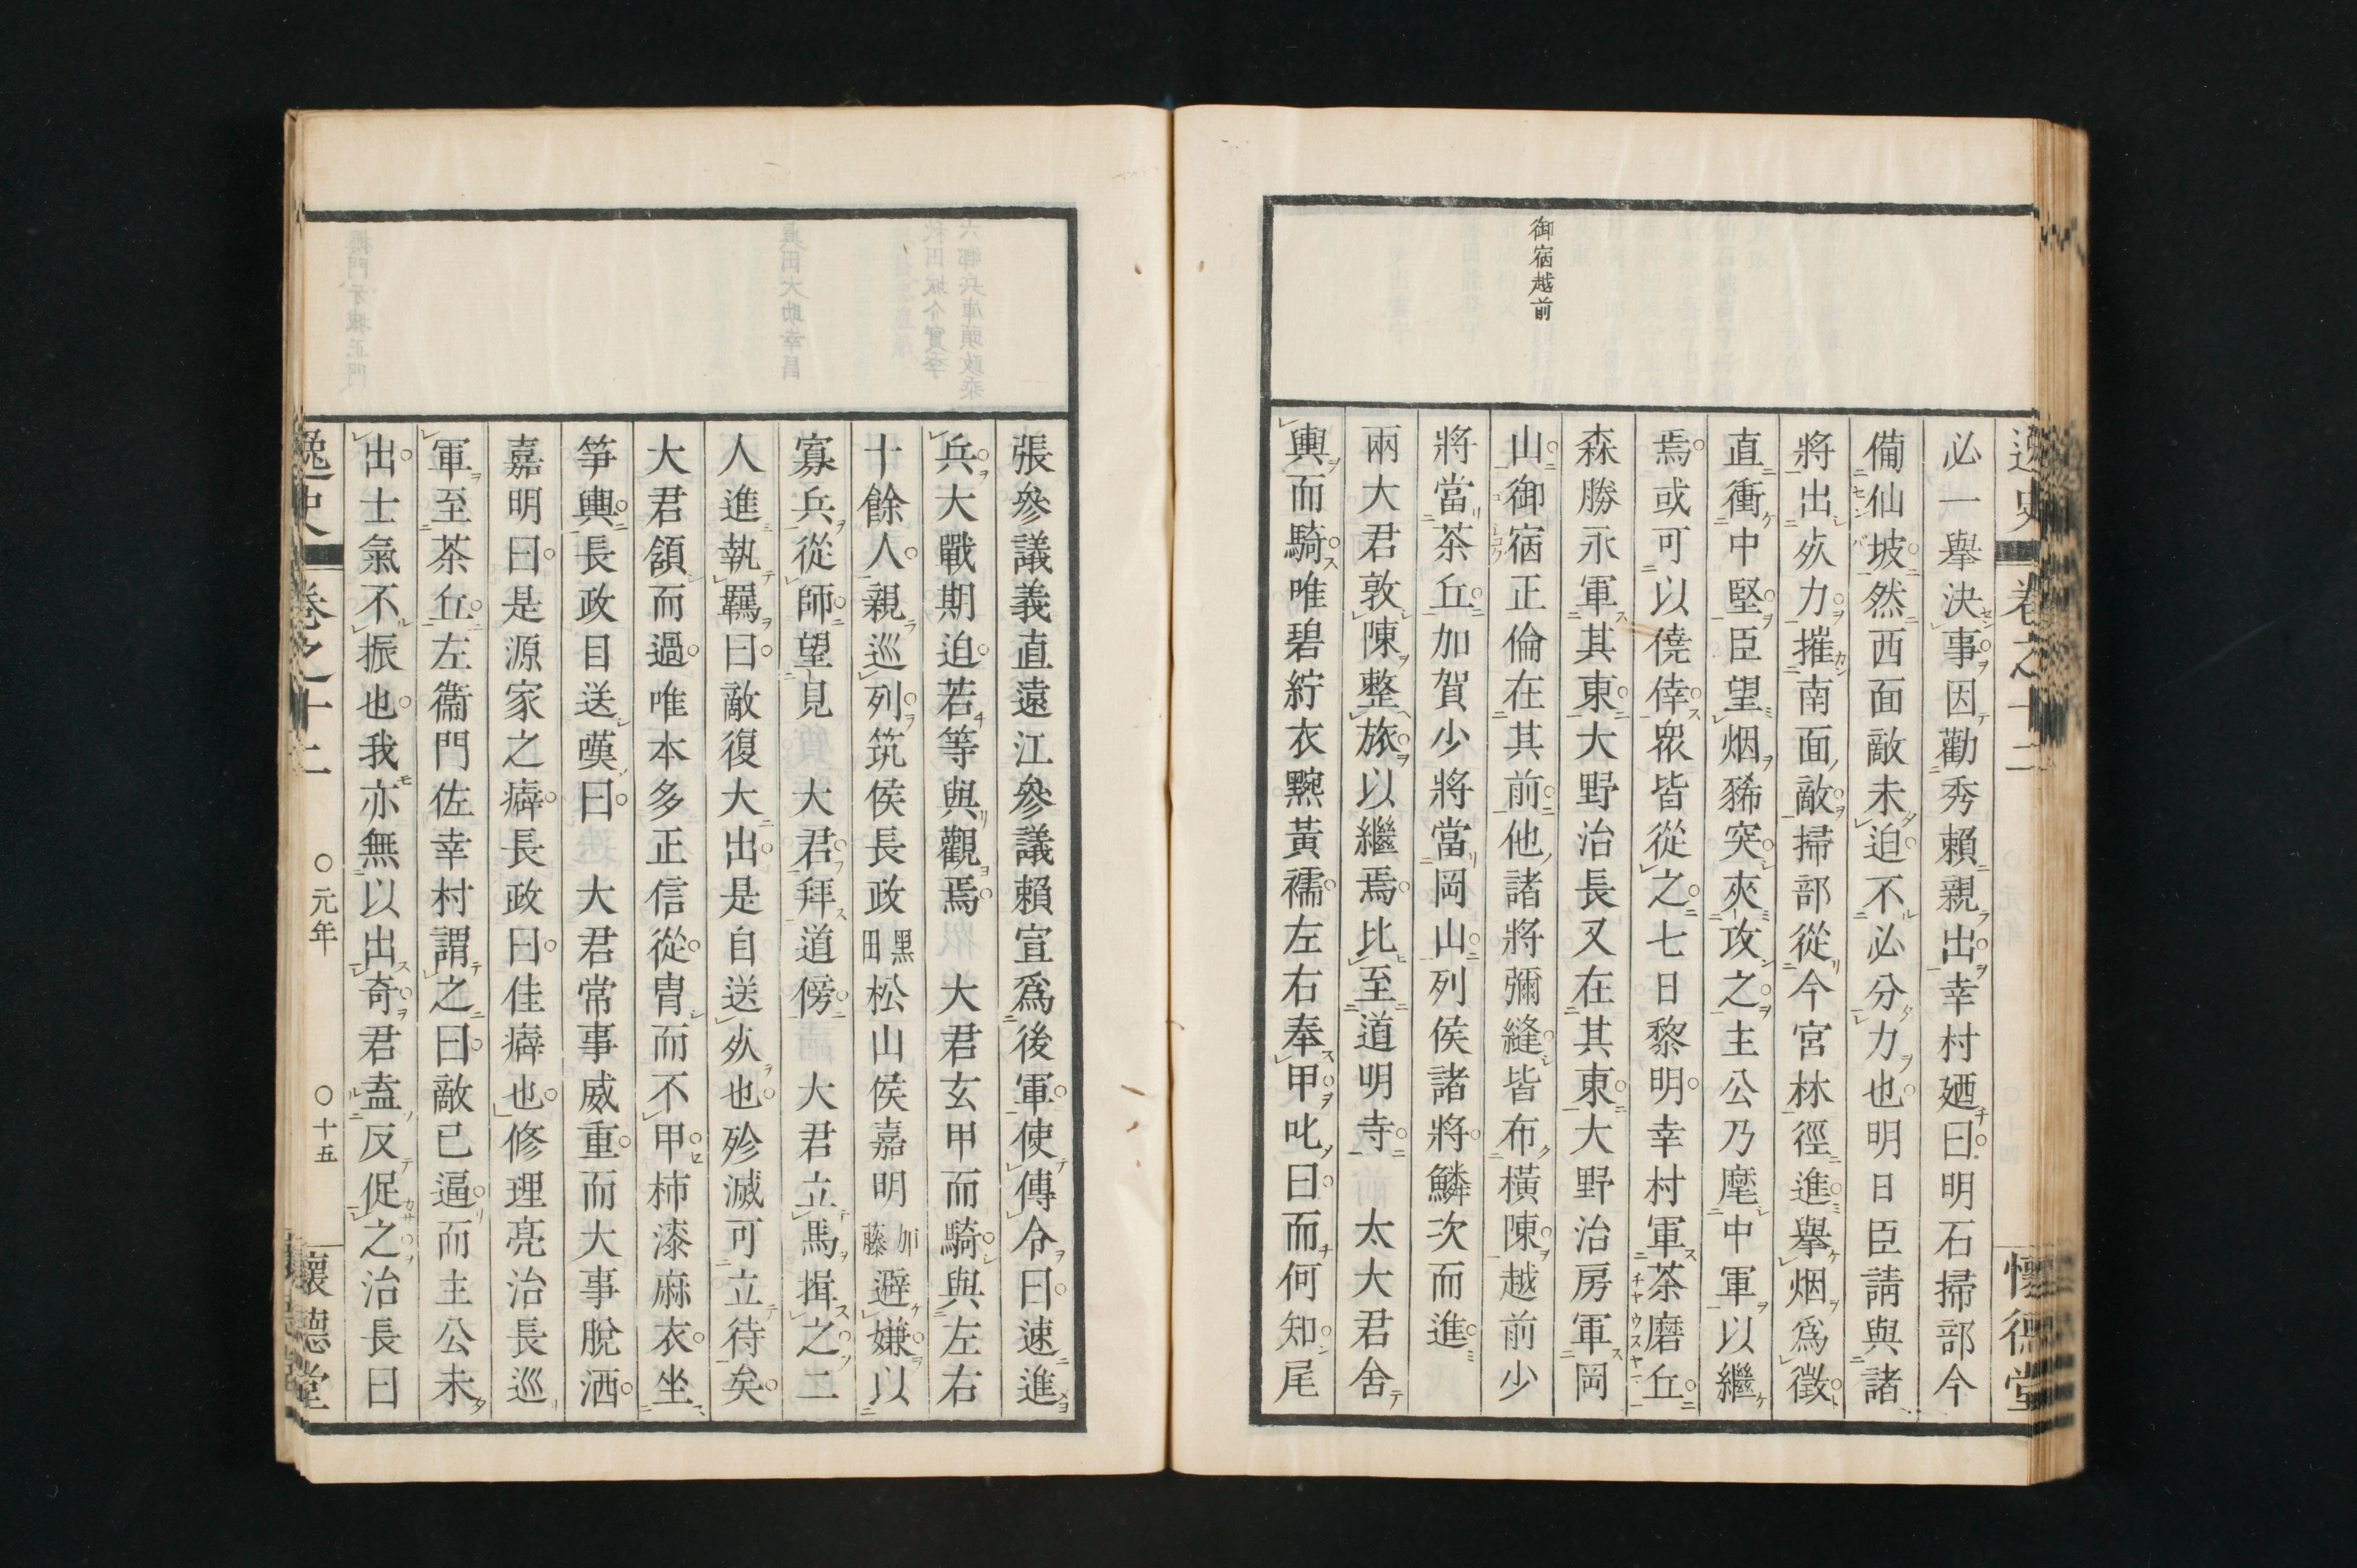 御宿越前
必一擧決事因勸秀賴親出幸村廼曰明石掃部今
備仙坡然西面敵未迫不必分力也明日臣請與諸
將出㱕力摧南面敵掃部從今宮林徑進擧烟爲徵
直衝中堅臣望烟豨突夾攻之主公乃麾中軍以繼
焉或可以僥倖衆皆從之七日黎明幸村軍茶磨丘
森勝永軍其東大野治長又在其東大野治房軍岡
山御宿正倫在其前他諸將彌縫皆布橫陳越前少
將當茶丘加賀少將當岡山列侯諸將鱗次而進
兩大君敦陳整旅以繼焉比至道明寺 太大君舍
輿而騎唯碧紵衣黦黃襦左右奉甲叱曰而何知尾
張參議義直遠江參議賴宣爲後軍使傳令曰速進
兵大戰期迫若等與觀焉 大君玄甲而騎與左右
十餘人親巡列筑侯長政黑田松山侯嘉明加藤避嫌以
寡兵從師望見 大君拜道傍 大君立馬揖之二
人進執羈曰敵復大出是自送㱕也殄滅可立待矣
大君頷而過唯本多正信從冑而不甲柿漆麻衣坐
笋輿長政目送嘆曰 大君常事威重而大事脫洒
嘉明曰是源家之癖長政曰佳癖也修理亮治長巡
軍至茶丘左衞門佐幸村謂之曰敵已逼而主公未
出士氣不振也我亦無以出奇君盍反促之治長曰
逸史 卷之十二 ○元年 ○十五 懷德堂